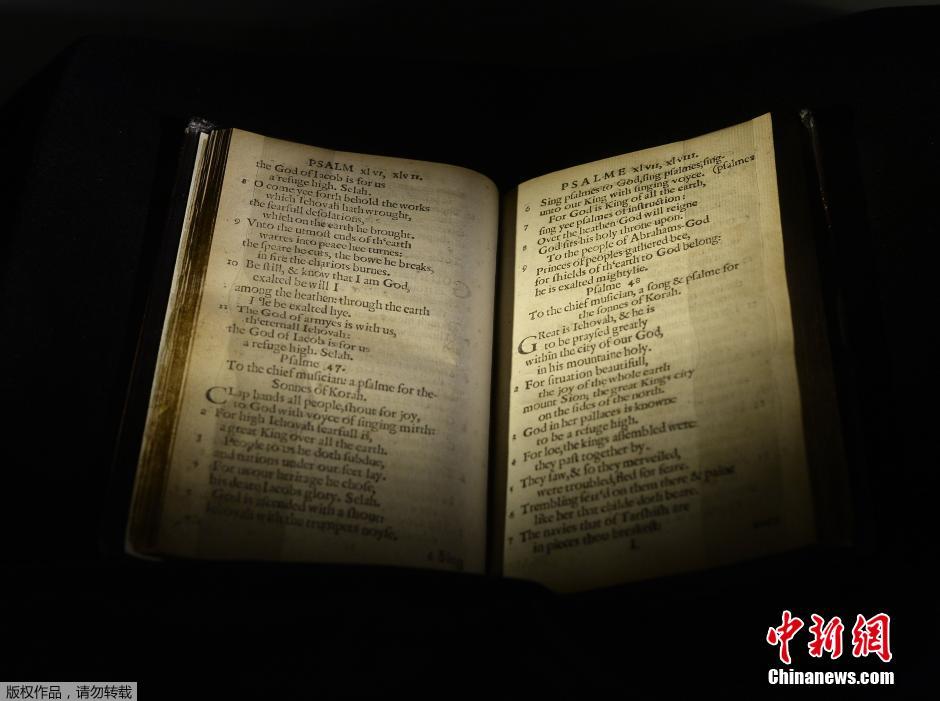 PSALM xlvi, xlvii.
the God of Iacob is for us
a refuge high. Selah.
8 O come yee forth behold the works
which Iehovah hath wrought,
the fearfull desolations,
which on the earth he brought.
9 Vnto the utmost ends of th'earth
warres into peace hee turnes:
the speare he cuts, the bowe he breaks,
in fire the chariots burnes.
10 Be still, & know that I am God,
exalted be will I
among the heathen: through the earth
I'le be exalted hye.
11 The God of armyes is with us,
th'eternall Iehovah:
the God of Iacob is for us
a refuge high. Selah.
Psalme 47.
To the chief musician: a psalme for the
Sonnes of Korah.
CLap hands all people, shout for joy,
to God with voyce of singing mirth:
2 For high Iehovah fearfull is,
a great King over all the earth.
3 People to us he doth subdue,
and nations under our feet lay.
4 For us our heritage he chose,
his deare Iacobs glory. Selah.
5 God is ascended with a shout:
Iehovah with the trumpets noyse.
6 Sing
PSALME xlvii, xlviii.
6 Sing psalmes to God, sing psalmes, sing
unto our King with singing voyce. (psalmes
7 For God is King of all the earth,
sing yee psalmes of instruction:
8 Over the heathen God will reigne
God sits his holy throne upon.
9 To the people of Abrahams-God
Princes of peoples gathered bee,
for shields of th'earth to God belong:
he is exalted mightylie.
Psalme 48
To the chief musician, a song & psalme for
the sonnes of Korah.
GReat is Iehovah, & he is
to be praysed greatly
within the city of our God,
in his mountaine holy.
2 For situation beautifull,
the joy of the whole earth
mount Sion; the great Kings city
on the sides of the north.
3 God in her pallaces is knowne
to be a refuge high.
4 For loe, the kings assembled were:
they past together by.
5 They saw, & so they merveiled,
were troubled, fled for feare.
6 Trembling seiz'd on them there & paine
like her that childe doth beare.
7 The navies that of Tarshish are
in pieces thou breakest:
中新網
Chinanews.com
版权作品，请勿转载